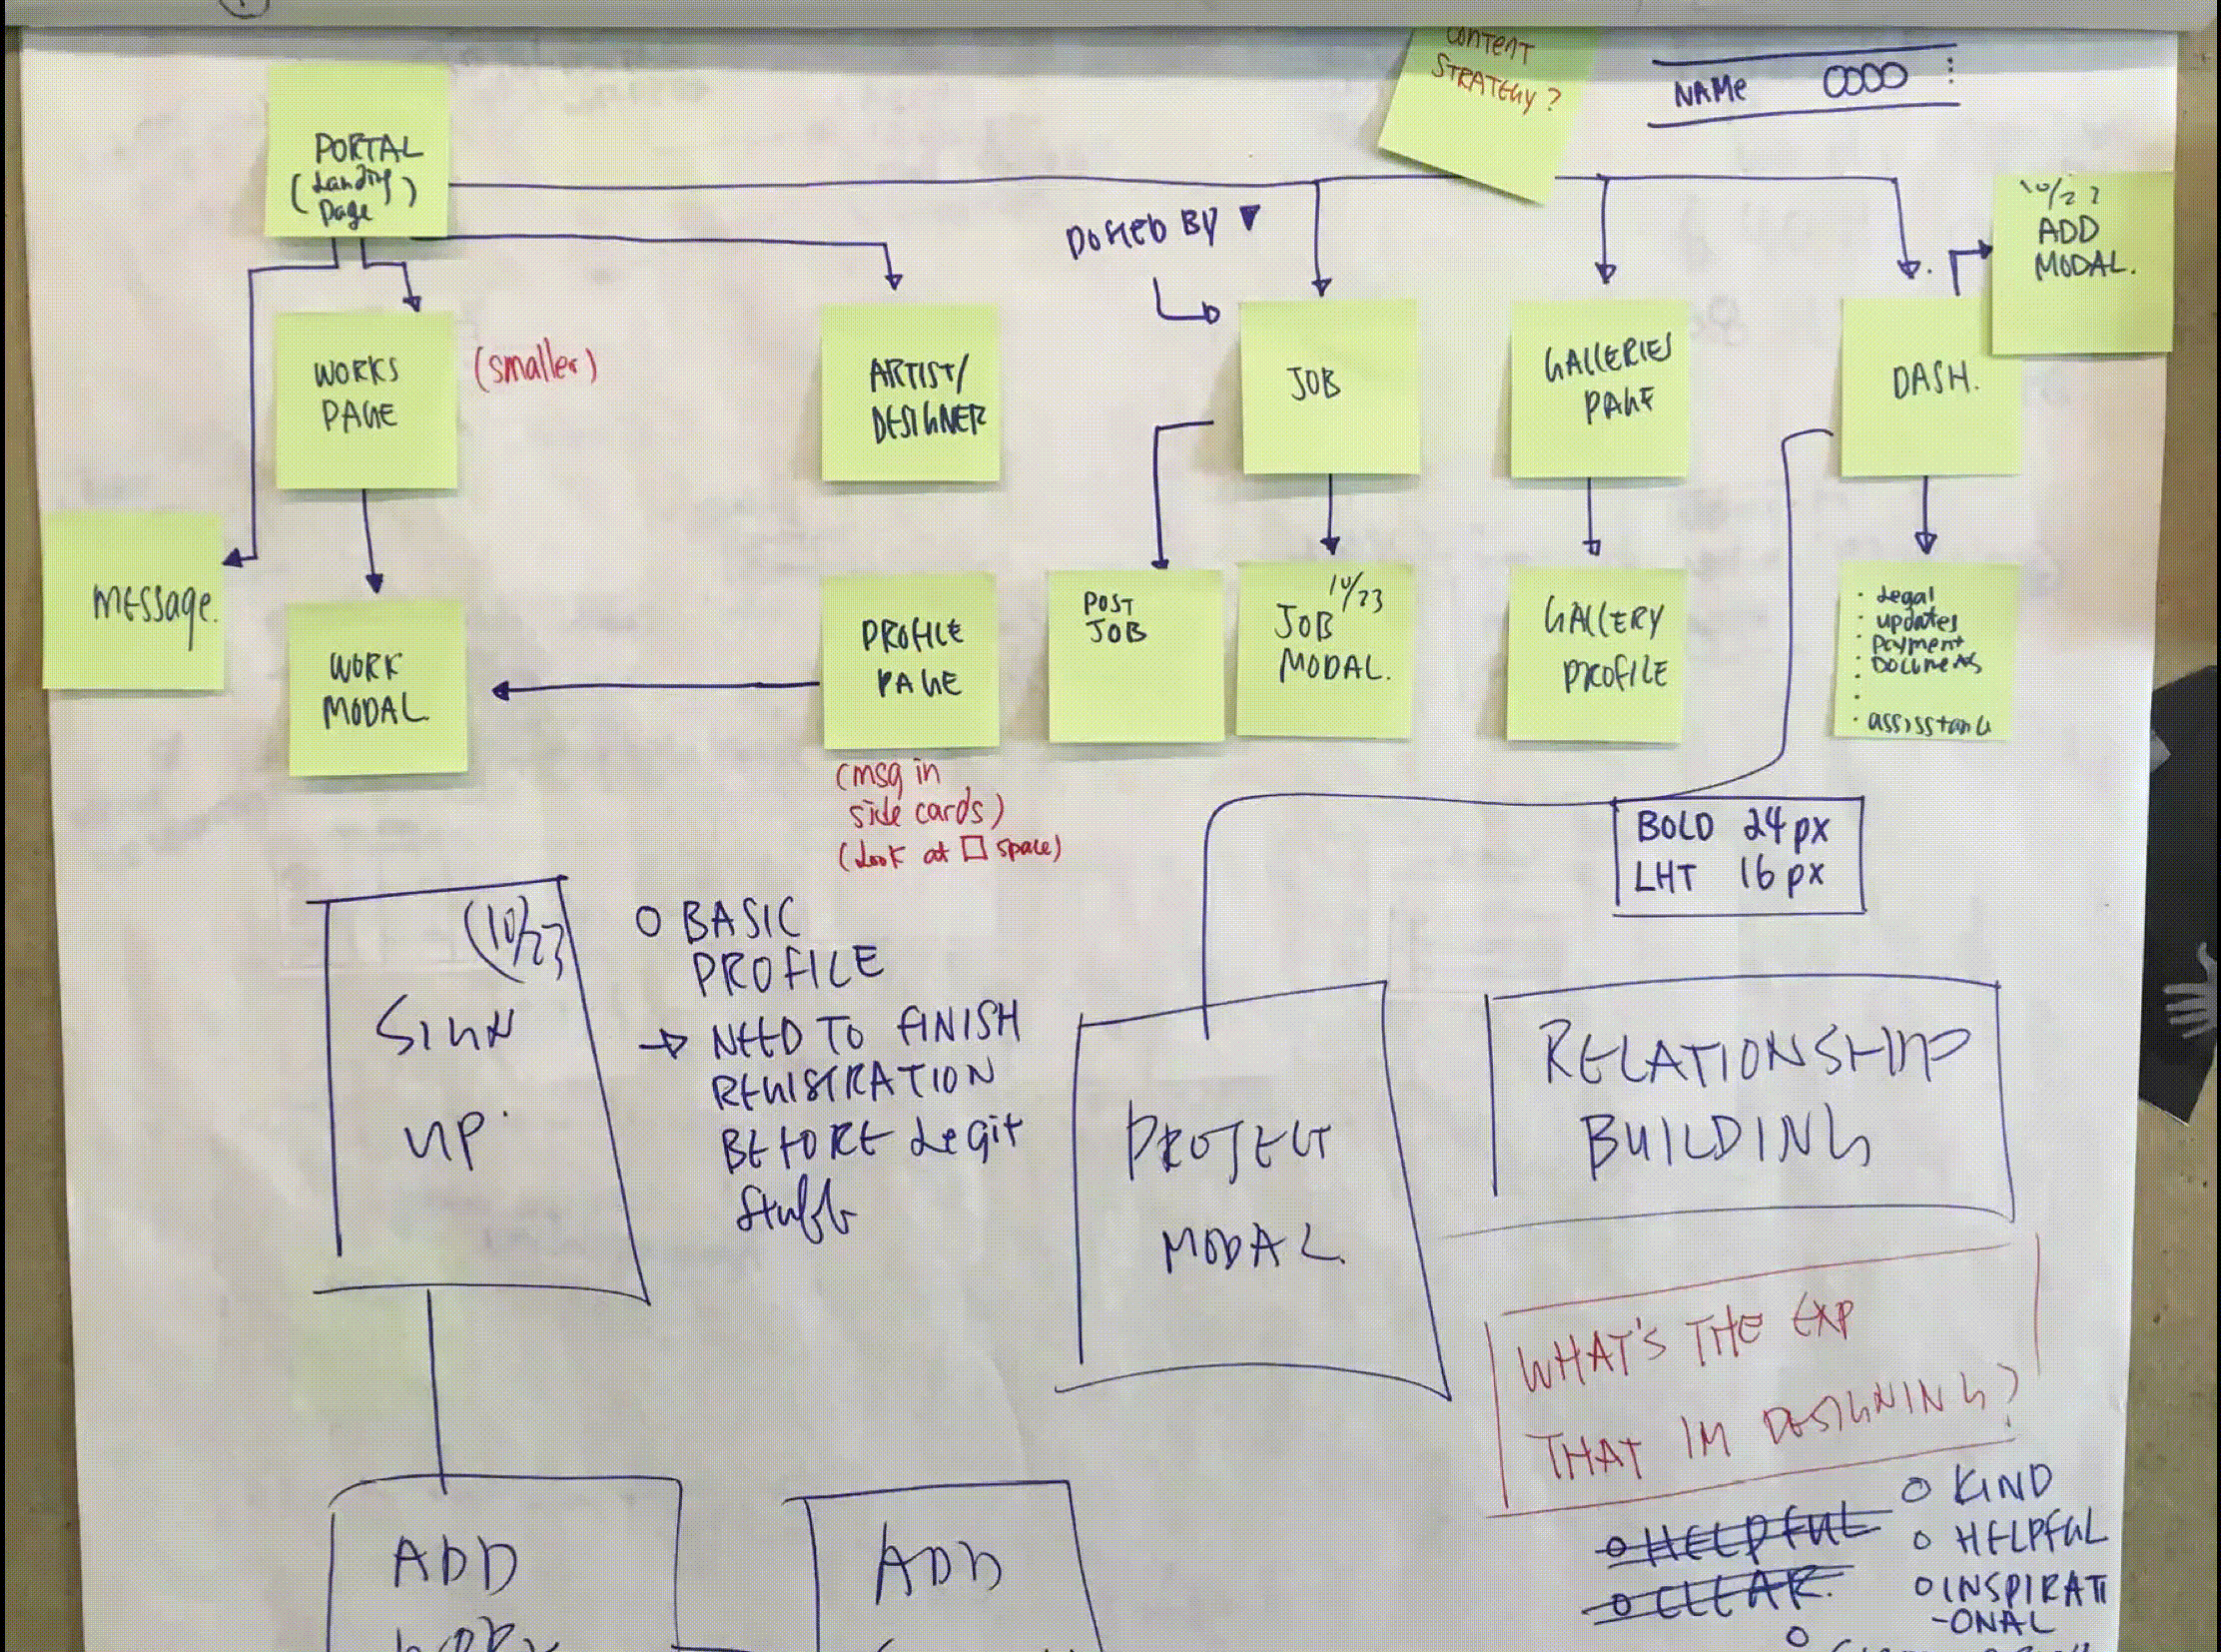 CONTENT
STRATEGY?
NAME
PORTAL
(Landing
Page)
POSTED BY ▼
10/23
ADD
MODAL.
WORKS
PAGE
(smaller)
ARTIST/
DESIGNER
JOB
GALLERIES
PAGE
DASH.
MESSAGE.
WORK
MODAL
PROFILE
PAGE
POST
JOB
10/23
JOB
MODAL.
GALLERY
PROFILE
· Legal
· updates
· Payment
· Documents
·
· assisstance
(msg in
side cards)
(Look at □ space)
BOLD 24px
LHT 16px
(10/23
SIGN
UP
O BASIC
PROFILE
→ NEED TO FINISH
REGISTRATION
BEFORE Legit
Stuff
PROJECT
MODAL
RELATIONSHIP
BUILDING
WHAT'S THE EXP
THAT IM DESIGNING?
O HELPFUL
O CLEAR.
O KIND
O HELPFUL
O INSPIRATI
-ONAL
O
ADD
WORK
ADD